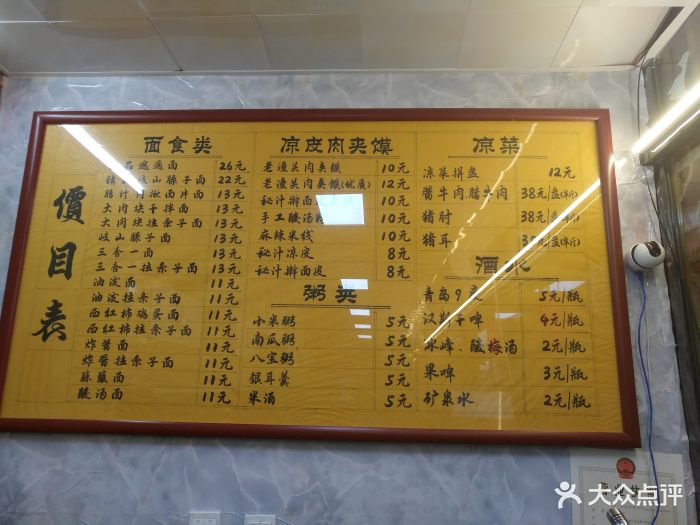 價目表
面食类
品biangbiang面 26元
岐山臊子面 22元
臊汁肉揪面片面 13元
大肉块干拌面 13元
大肉块拉条子面 13元
岐山臊子面 13元
三合一面 13元
三合一拉条子面 13元
油泼面 11元
油泼拉条子面 11元
西红柿鸡蛋面 11元
西红柿拉条子面 11元
炸酱面 11元
炸酱拉条子面 11元
面 11元
酸汤面 11元
凉皮肉夹馍
老潼关肉夹馍 10元
老潼关肉夹馍(优质) 12元
秘汁擀面 10元
手工酸汤 10元
麻辣米线 10元
秘汁凉皮 8元
秘汁擀面皮 8元
粥类
小米粥 5元
南瓜粥 5元
八宝粥 5元
银耳羹 5元
果酒 5元
凉菜
凉菜拼盘 12元
酱牛肉腊牛肉 38元/盘(半斤)
猪肘 38元/盘(半斤)
猪耳
酒水
青岛9度 5元/瓶
汉斯干啤 4元/瓶
冰峰、酸梅汤 2元/瓶
果啤 3元/瓶
矿泉水 2元/瓶
大众点评